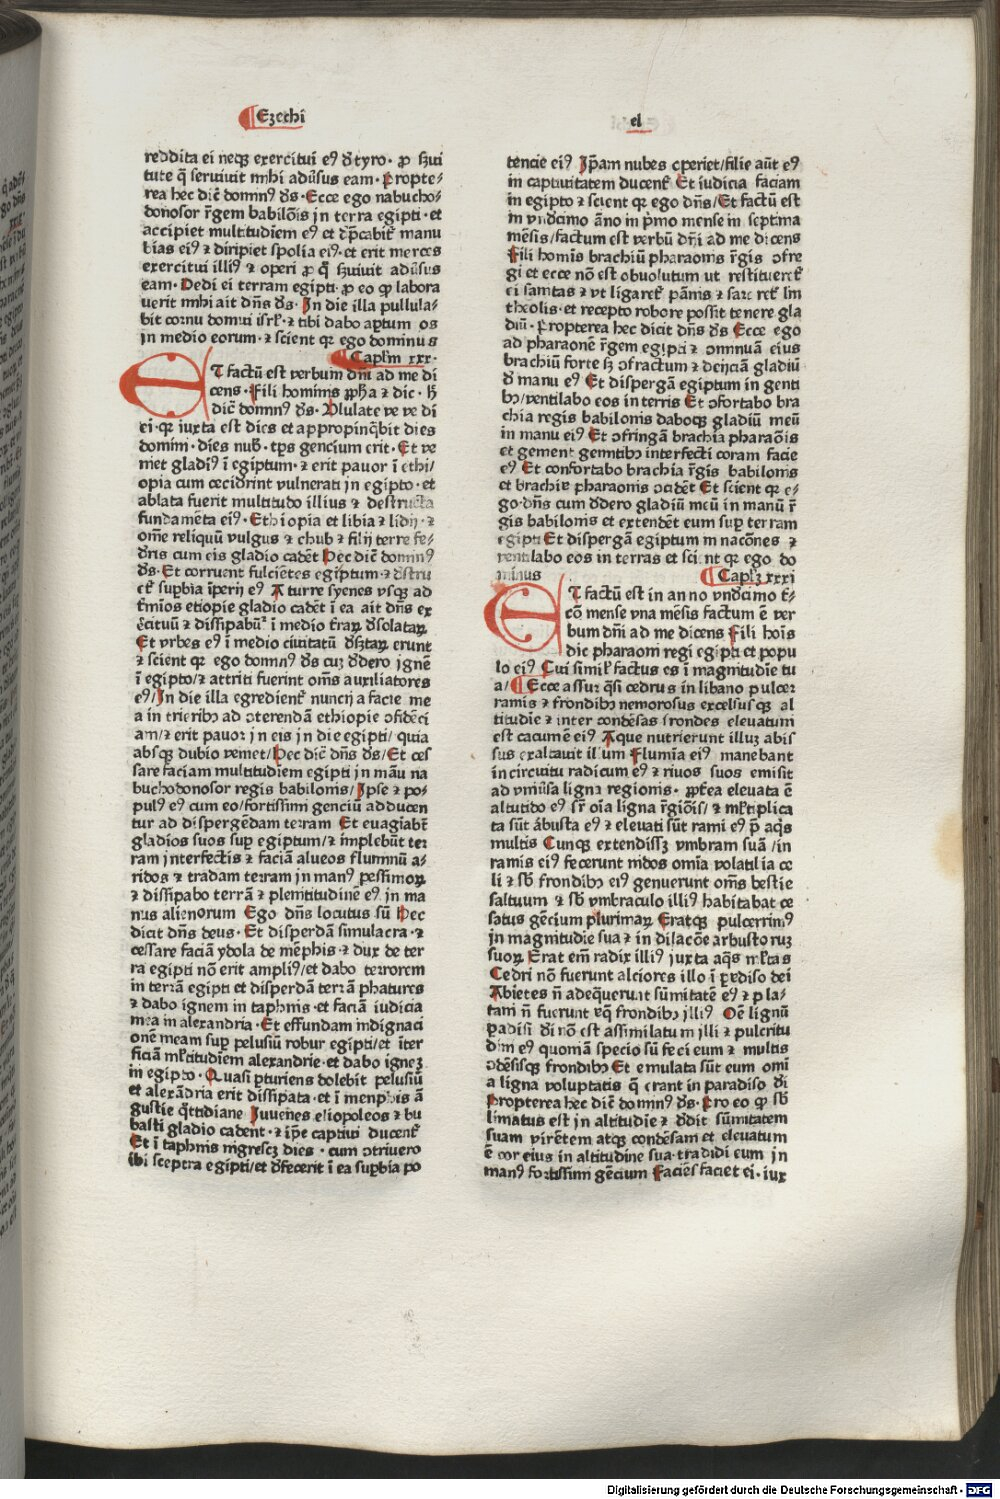 Ezechi
el
reddita ei neqꝫ exercitui eꝰ ð tyro· ꝓ ẜui
tute q̄ seruiuit mihi aduꝰsus eam· Propte⸗
rea hec dic̄ domnꝰ ðs· Ecce ego nabucho⸗
donosor r̄gem babilōis jn terra egipti· et
accipiet multitudiem eꝰ et dp̄cabit᷑ manu
bias eiꝰ ⁊ diripiet spolia eiꝰ· et erit merces
exercitui illiꝰ ⁊ operi ꝓ q̄ ẜuiuit aduꝰsus
eam· Dedi ei terram egipti· ꝓ eo ꝙ labora
uerit mihi ait dn̄s ðs· In die illa pullula⸗
bit cornu domui isrl᷑· ⁊ tibi dabo aptum os
jn medio eorum· ⁊ scient qꝛ ego dominus
Caplm̄ xxx·
ET factū est verbum dn̄i ad me di
cens· Fili hominis ꝓph̄a ⁊ dic· h̄
dic̄ domnꝰ ðs· Vlulate ve ve di
ei· qꝛ iuxta est dies et appropinq̄bit dies
domini· dies nub᷑· tp̄s gencium erit· Et ve
niet gladiꝰ ī egiptum· ⁊ erit pauor ī ethi/
opia cum ceciderint vulnerati jn egipto· et
ablata fuerit multitudo illius ⁊ destructa
fundamēta eiꝰ· Ethiopia et libia ⁊ lidij· ⁊
om̄e reliquū vulgus ⁊ chub ⁊ filij terre fe⸗
ðris cum eis gladio cadēt Hec dic̄ dominꝰ
ðs· Et corruent fulciētes egiptum· ⁊ ðstru
et᷑ supbia īperij eꝰ A turre syenes vsqꝫ ad
t᷑mīos etiopie gladio cadēt ī ea ait dn̄s ex
ercituū ⁊ dissipabūt᷑ ī medio t᷑raꝝ ðsolataꝝ
Et vrbes eꝰ ī medio ciuitatū ðs̄taꝝ erunt
⁊ scient qꝛ ego domnꝰ ðs cuꝫ ðdero jgnē
ī egipto/ ⁊ attriti fuerint om̄s auxiliatores
eꝰ/ In die illa egredient᷑ nuncij a facie me
a in trieribꝫ ad ꝯterendā ethiopie ꝯfidēci
am/ ⁊ erit pauor jn eis jn die egipti/ quia
absqꝫ dubio veniet/ Hec dic̄ dn̄s ðs/ Et ces
sare faciam multitudiem egipti jn māu na
buchodonosor regis babilonis/ Ipse ⁊ po⸗
pulꝰ eꝰ cum eo/ fortissimi genciū adducen
tur ad dispergēdam terram Et euagiabt᷑
gladios suos sup egiptum/ ⁊ implebūt ter
ram jnterfectis ⁊ faciā alueos fluminū a⸗
ridos ⁊ tradam terram jn manꝰ pessimoꝝ
⁊ dissipabo terrā ⁊ plenititudinē eꝰ jn ma
nus alienorum Ego dn̄s locutus sū Hec
dicit dn̄s deus· Et disperdā simulacra· ⁊
cessare faciā ydola de mēphis· ⁊ dux de ter
ra egipti nō erit ampliꝰ/ et dabo terrorem
in terrā egipti et disperdā terrā phatures
⁊ dabo ignem in taphnis· et faciā iudicia
mea in alexandria· Et effundam indignaci
onē meam sup pelusiū robur egipti/ et iter
ficiā ml᷑titudiem alexandrie· et dabo igneꝫ
in egipto· Quasi pturiens dolebit pelusiū
et alexādria erit dissipata· et ī menphis ā
gustie q̄ttidiane Iuuenes eliopoleos ⁊ bu
basti gladio cadent· ⁊ ip̄e captiui ducent᷑
Et ī taphnis nigrescꝫ dies· cum ꝯtriuero
ibi sceptra egipti/ et ðfecerit ī ea supbia po
tencie eiꝰ Ip̄am nubes operiet/ filie aūt eꝰ
in captiuitatem ducent᷑ Et iudicia faciam
in egipto ⁊ scient qꝛ ego dn̄s/ Et factū est
in vndcimo āno in p̄mo mense in septima
mēsis/ factum est verbū dn̄i ad me dicens
Fili homis brachiū pharaonis r̄gis ꝯfre
gi et ecce nō est obuolutum ut restitueret᷑
ei sanitas ⁊ vt ligaret᷑ pānis ⁊ farciret᷑ lin
theolis· et recepto robore possit tenere gla
diū· Propterea hec dicit dn̄s ðs Ecce ego
ad pharaonē r̄gem egipti ⁊ ꝯminuā eius
brachiū forte sꝫ ꝯfractum ⁊ deijciā gladiū
ð manu eꝰ Et dispergā egiptum in genti
bꝫ/ ventilabo eos in terris Et ꝯfortabo bra
chia regis babilonis daboqꝫ gladiū meū
in manu eiꝰ Et ꝯfringā brachia pharaōis
et gement gemitibꝫ interfecti coram facie
eꝰ Et confortabo brachia r̄gis babilonis
et brachia pharaonis ꝯcidēt Et scient qꝛ e⸗
go· dn̄s cum ðdero gladiū meū in manū r̄
gis babilonis et extendēt eum sup terram
egipti Et dispergā egiptum in nacōnes ⁊
ventilabo eos in terras et scient qꝛ ego do
minus
Caplꝫ xxxi
ET factū est in anno vndcimo t᷑⸗
cō mense vna mēsis factum ē ver
bum dn̄i ad me dicens Fili hoīs
dic pharaoni regi egipti et popu
lo eiꝰ Cui simil᷑ factus es ī magnitudie tu
a/ Ecce assur q̄si cedrus in libano pulcer
ramis ⁊ frondibꝫ nemorosus excelsusqꝫ al
titudie ⁊ inter condēsas frondes eleuatum
est cacumē eiꝰ Aque nutrierunt illuꝫ abis
sus exaltauit illum Flumīa eiꝰ manebant
in circuitu radicum eꝰ ⁊ riuos suos emisit
ad vniūsa ligna regionis· ꝓpt᷑ea eleuata ē
altitudo eꝰ sr̄ oīa ligna r̄giōis/ ⁊ ml᷑tiplica
ta sūt ábusta eꝰ ⁊ eleuati sūt rami eꝰ p̄ aq̄s
multis Cunqꝫ extendissꝫ vmbram suā/ in
ramis eiꝰ fecerunt nidos omīa volatilia ce
li ⁊ sb᷑ frondibꝫ eiꝰ genuerunt om̄s bestie
saltuum ⁊ sb᷑ vmbraculo illiꝰ habitabat ce
satus gēcium plurimaꝝ Eratqꝫ pulcerrimꝰ
jn magnitudie sua ⁊ in dilacōe arbustoruꝫ
suoꝝ Erat em̄ radix illiꝰ juxta aq̄s ml᷑tas
Cedri nō fuerunt alciores illo ī pædiso dei
Abietes n̄ adeq̄uerunt sūmitatē eꝰ ⁊ pla⸗
tani n̄ fuerunt eq̄ frondibꝫ jlliꝰ Oē lignū
padisi ði nō est assimilatum jlli ⁊ pulcritu
dini eꝰ quomā specio sū feci eum ⁊ multis
ꝯdēsisqꝫ frondibꝫ Et emulata sūt eum omī
a ligna voluptatis q̄ erant in paradiso ði
Propterea hec dic̄ domnꝰ ðs· Pro eo ꝙ sb᷑
limatus est jn altitudie ⁊ ðdit sūmitatem
suam virētem atqꝫ condēsam et eleuatum
ē cor eius in altitudine sua· tradidi eum jn
manꝰ fortissimi gēcium Faciēs faciet ei· iux
Digitalisierung gefördert durch die Deutsche Forschungsgemeinschaft - DFG